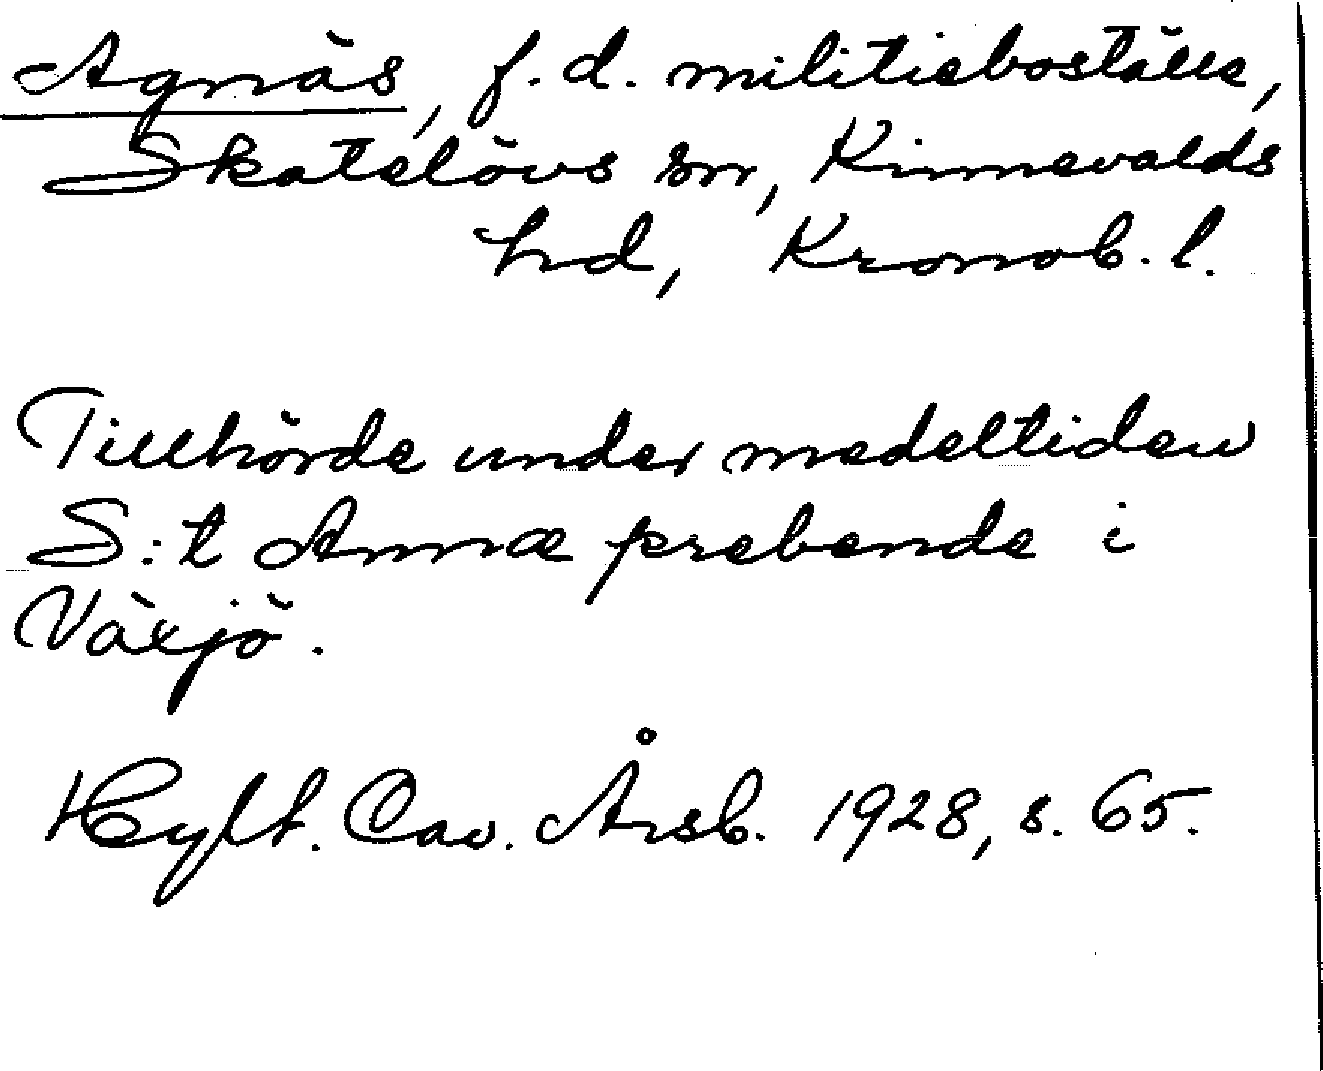 Agnäs, f. d. militieboställe,
Skatelövs sn, Kinnevalds
hd, Kronob. l.
Tillhörde under medeltiden
S:t Annæ prebende i
Växjö.
Hylt. Cav. Årsb. 1928, s. 65.